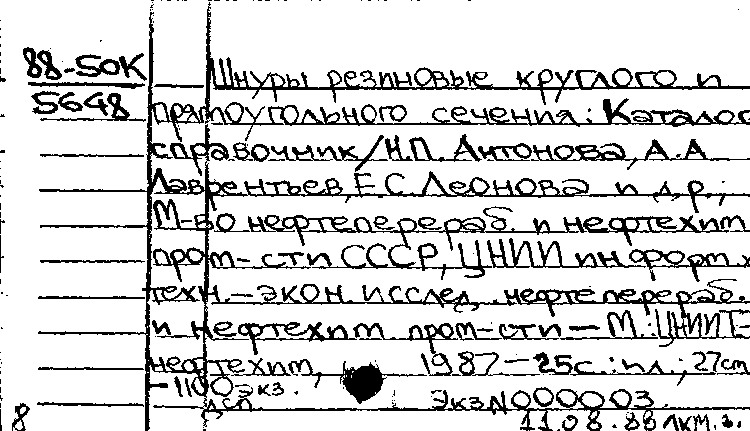 88-50К
5648
Шнуры резиновые круглого и
прямоугольного сечения: Каталог
справочник/Н.П. Антонова, А.А
Лаврентьев, Е.С Леонова и др.;
М-во нефтеперераб. и нефтехим
пром-сти СССР, ЦНИИ информ и
техн.-экон. исслед. нефтеперераб.
и нефтехим пром-сти — М.: ЦНИИТЭ-
нефтехим, 1987 — 25с.: ил.; 27см
-1100 экз.
ДСП. Экз N000003.
8 11.08.88